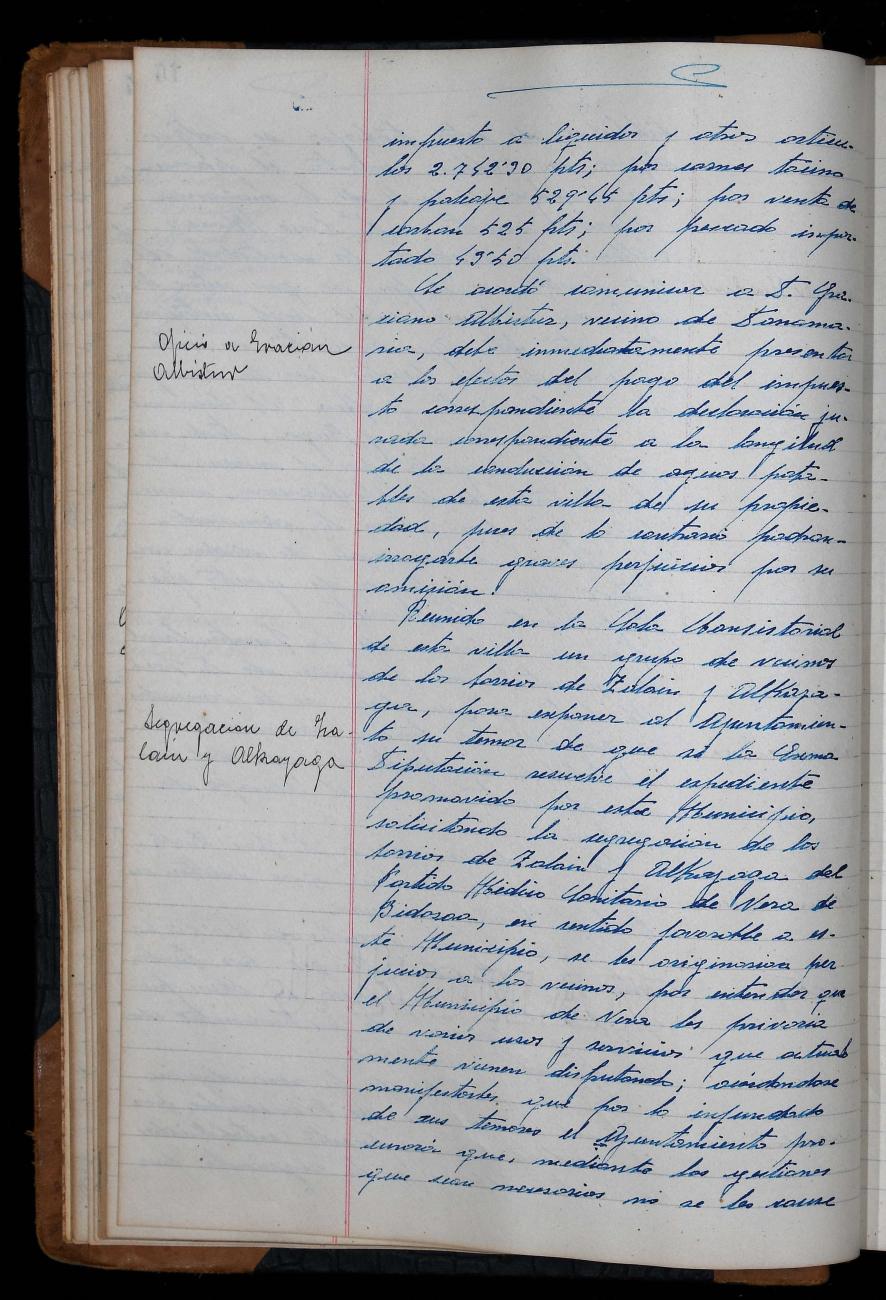 impuesto a líquidos y otros artícu-
los 2.742'90 pts; por carnes tocino
y pateaje 529'45 pts; por venta de
carbon 525 pts; por pescado impor-
tado 49'50 pts.
Se acordó comunicar a D. Gra-
ciano Albistur, vecino de Donama-
ria, debe inmediatamente presentar
a los efectos del pago del impues-
to correspondiente la declaración ju-
rada correspondiente a la longitud
de la conducción de aguas pota-
bles de esta villa de su propie-
dad, pues de lo contrario podran
irrogarle graves perjuicios por su
omisión.
Oficio a Gracián
Albistur
Reunido en la Sala Consistorial
de esta villa un grupo de vecinos
de los barrios de Zalain y Alkaya-
ga, para exponer al Ayuntamien-
to su temor de que si la Exma
Diputación resuelve el expediente
promovido por este Municipio,
solicitando la segregación de los
barrios de Zalain y Alkayaga del
Partido Médico Sanitario de Vera de
Bidasoa, en sentido favorable a es-
te Municipio, se les originarian per
juicios a los vecinos, por entender que
el Municipio de Vera les privaria
de varios usos y servicios que actual
mente vienen disfrutando; acordandose
manifestarles que por lo infundado
de sus temores el Ayuntamiento pro-
curará que, mediante las gestiones
que sean necesarias no se les cause
Segregacion de Za-
lain y Alkayaga